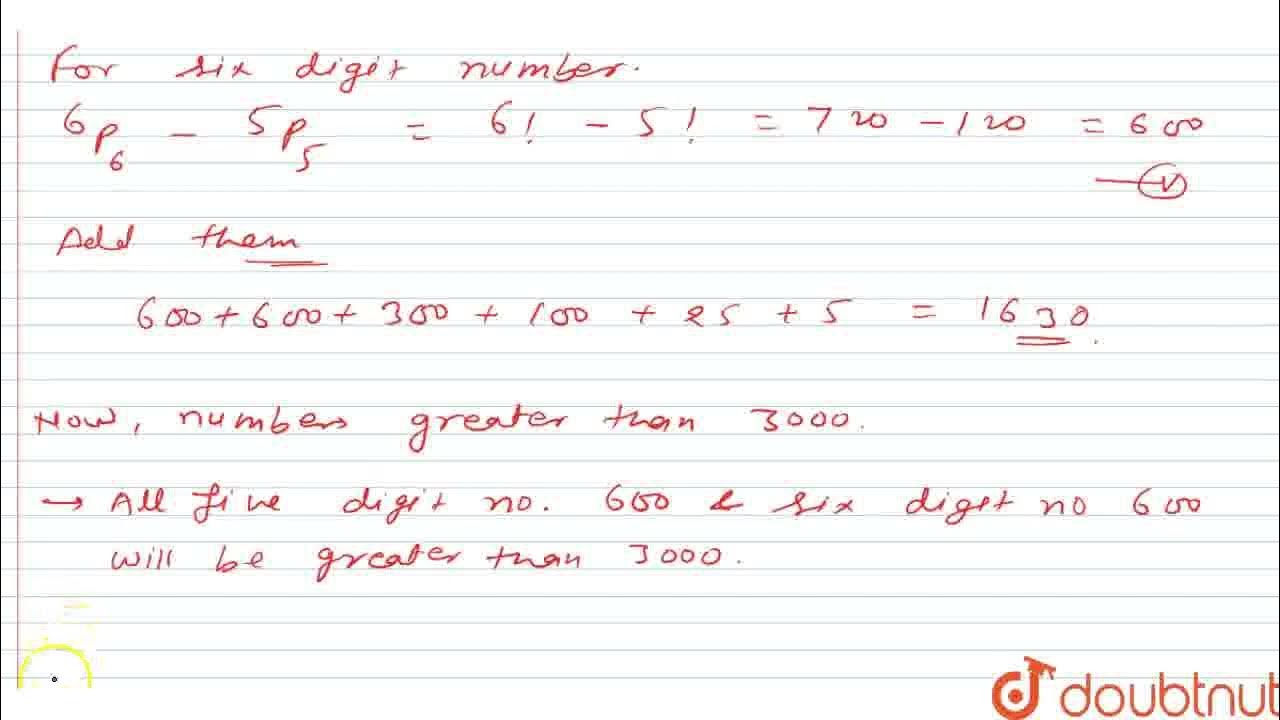 For six digit number.
6P6 - 5P5 = 6! - 5! = 720 - 120 = 600
V
Add them
600 + 600 + 300 + 100 + 25 + 5 = 1630.
Now, numbers greater than 3000.
→ All five digit no. 600 & six digit no 600
will be greater than 3000.
doubtnut